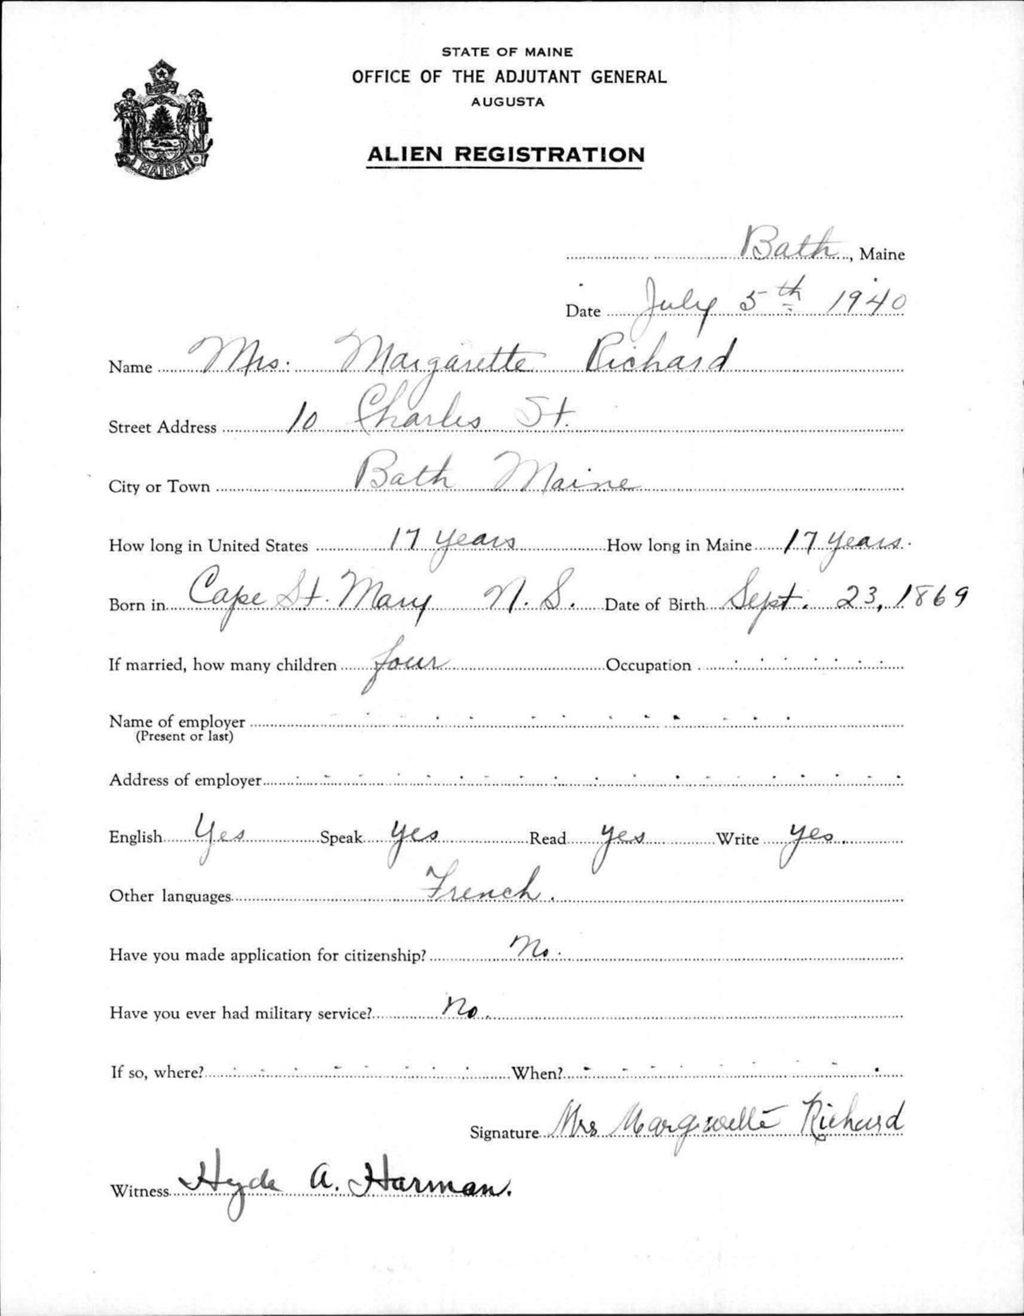 STATE OF MAINE
OFFICE OF THE ADJUTANT GENERAL
AUGUSTA
ALIEN REGISTRATION
MAINE
Bath, Maine
Date July 5th 1940
Name Mrs. Margarette Richard
Street Address 10 Charles St.
City or Town Bath Maine
How long in United States 17 years How long in Maine 17 years.
Born in Cape St. Mary N. S. Date of Birth Sept. 23, 1869
If married, how many children four Occupation
Name of employer
(Present or last)
Address of employer
English Yes Speak yes Read yes Write yes.
Other languages French.
Have you made application for citizenship? No.
Have you ever had military service? No.
If so, where? When?
Signature Mrs Margarette Richard
Witness Hyde A. Harman.